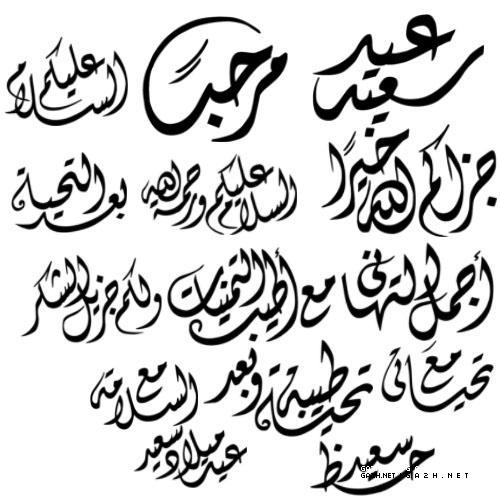 عيد سعيد
مرحباً
السلام عليكم
جزاكم الله خيرًا
السلام عليكم ورحمة الله
بعد التحية
أجمل التهاني مع أطيب التمنيات
ولكم جزيل الشكر
مع تحياتي
تحية طيبة وبعد
مع السلامة
حظ سعيد
عيد ميلاد سعيد
GA2H.NET